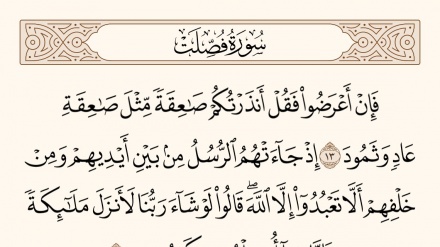 سُورَةُ فُصِّلَتۡ
فَإِنۡ أَعۡرَضُواْ فَقُلۡ أَنذَرۡتُكُمۡ صَٰعِقَةٗ مِّثۡلَ صَٰعِقَةِ
عَادٖ وَثَمُودَ ١٣ إِذۡ جَآءَتۡهُمُ ٱلرُّسُلُ مِنۢ بَيۡنِ أَيۡدِيهِمۡ وَمِنۡ
خَلۡفِهِمۡ أَلَّا تَعۡبُدُوٓاْ إِلَّا ٱللَّهَۖ قَالُواْ لَوۡ شَآءَ رَبُّنَا لَأَنزَلَ مَلَٰٓئِكَةٗ